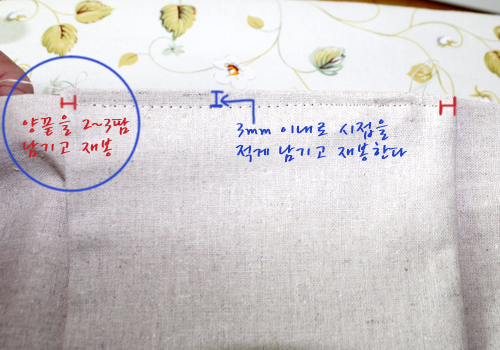 양끝을 2~3땀
남기고 재봉
3mm 이내로 시접을
적게 남기고 재봉한다